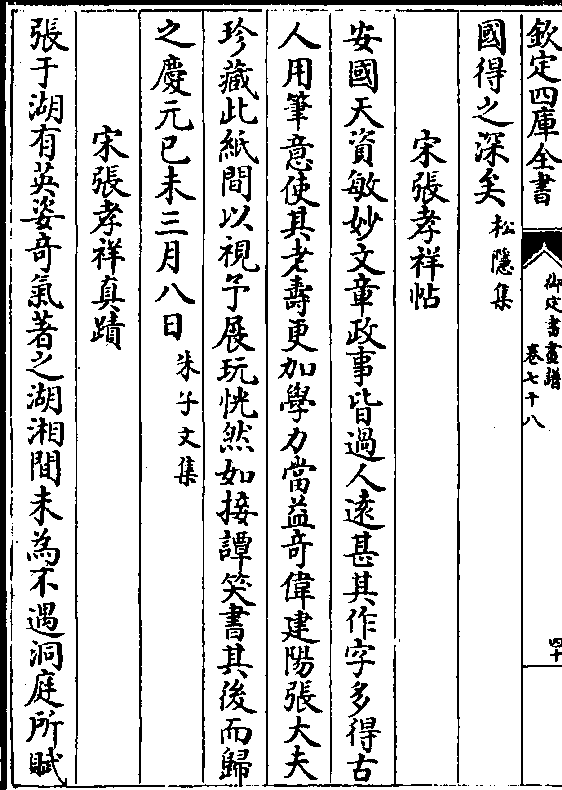 欽定四庫全書
御定書畫譜
卷七十八
四十
國得之深矣松隱集
宋張孝祥帖
安國天資敏妙文章政事皆過人遠甚其作字多得古
人用筆意使其老壽更加學力當益奇偉建陽張大夫
珍藏此紙間以視予展玩恍然如接譚笑書其後而歸
之慶元已未三月八日朱子文集
宋張孝祥真蹟
張于湖有英姿奇氣著之湖湘間未為不遇洞庭所賦